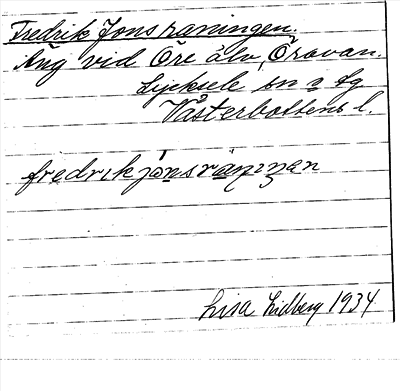 Fredrik Jonsraningen.
Äng vid Öre älv, Öravan.
Lycksele sn o. lg
Västerbottens l.
fredrikjónsràniŋən
Lisa Lidberg 1934